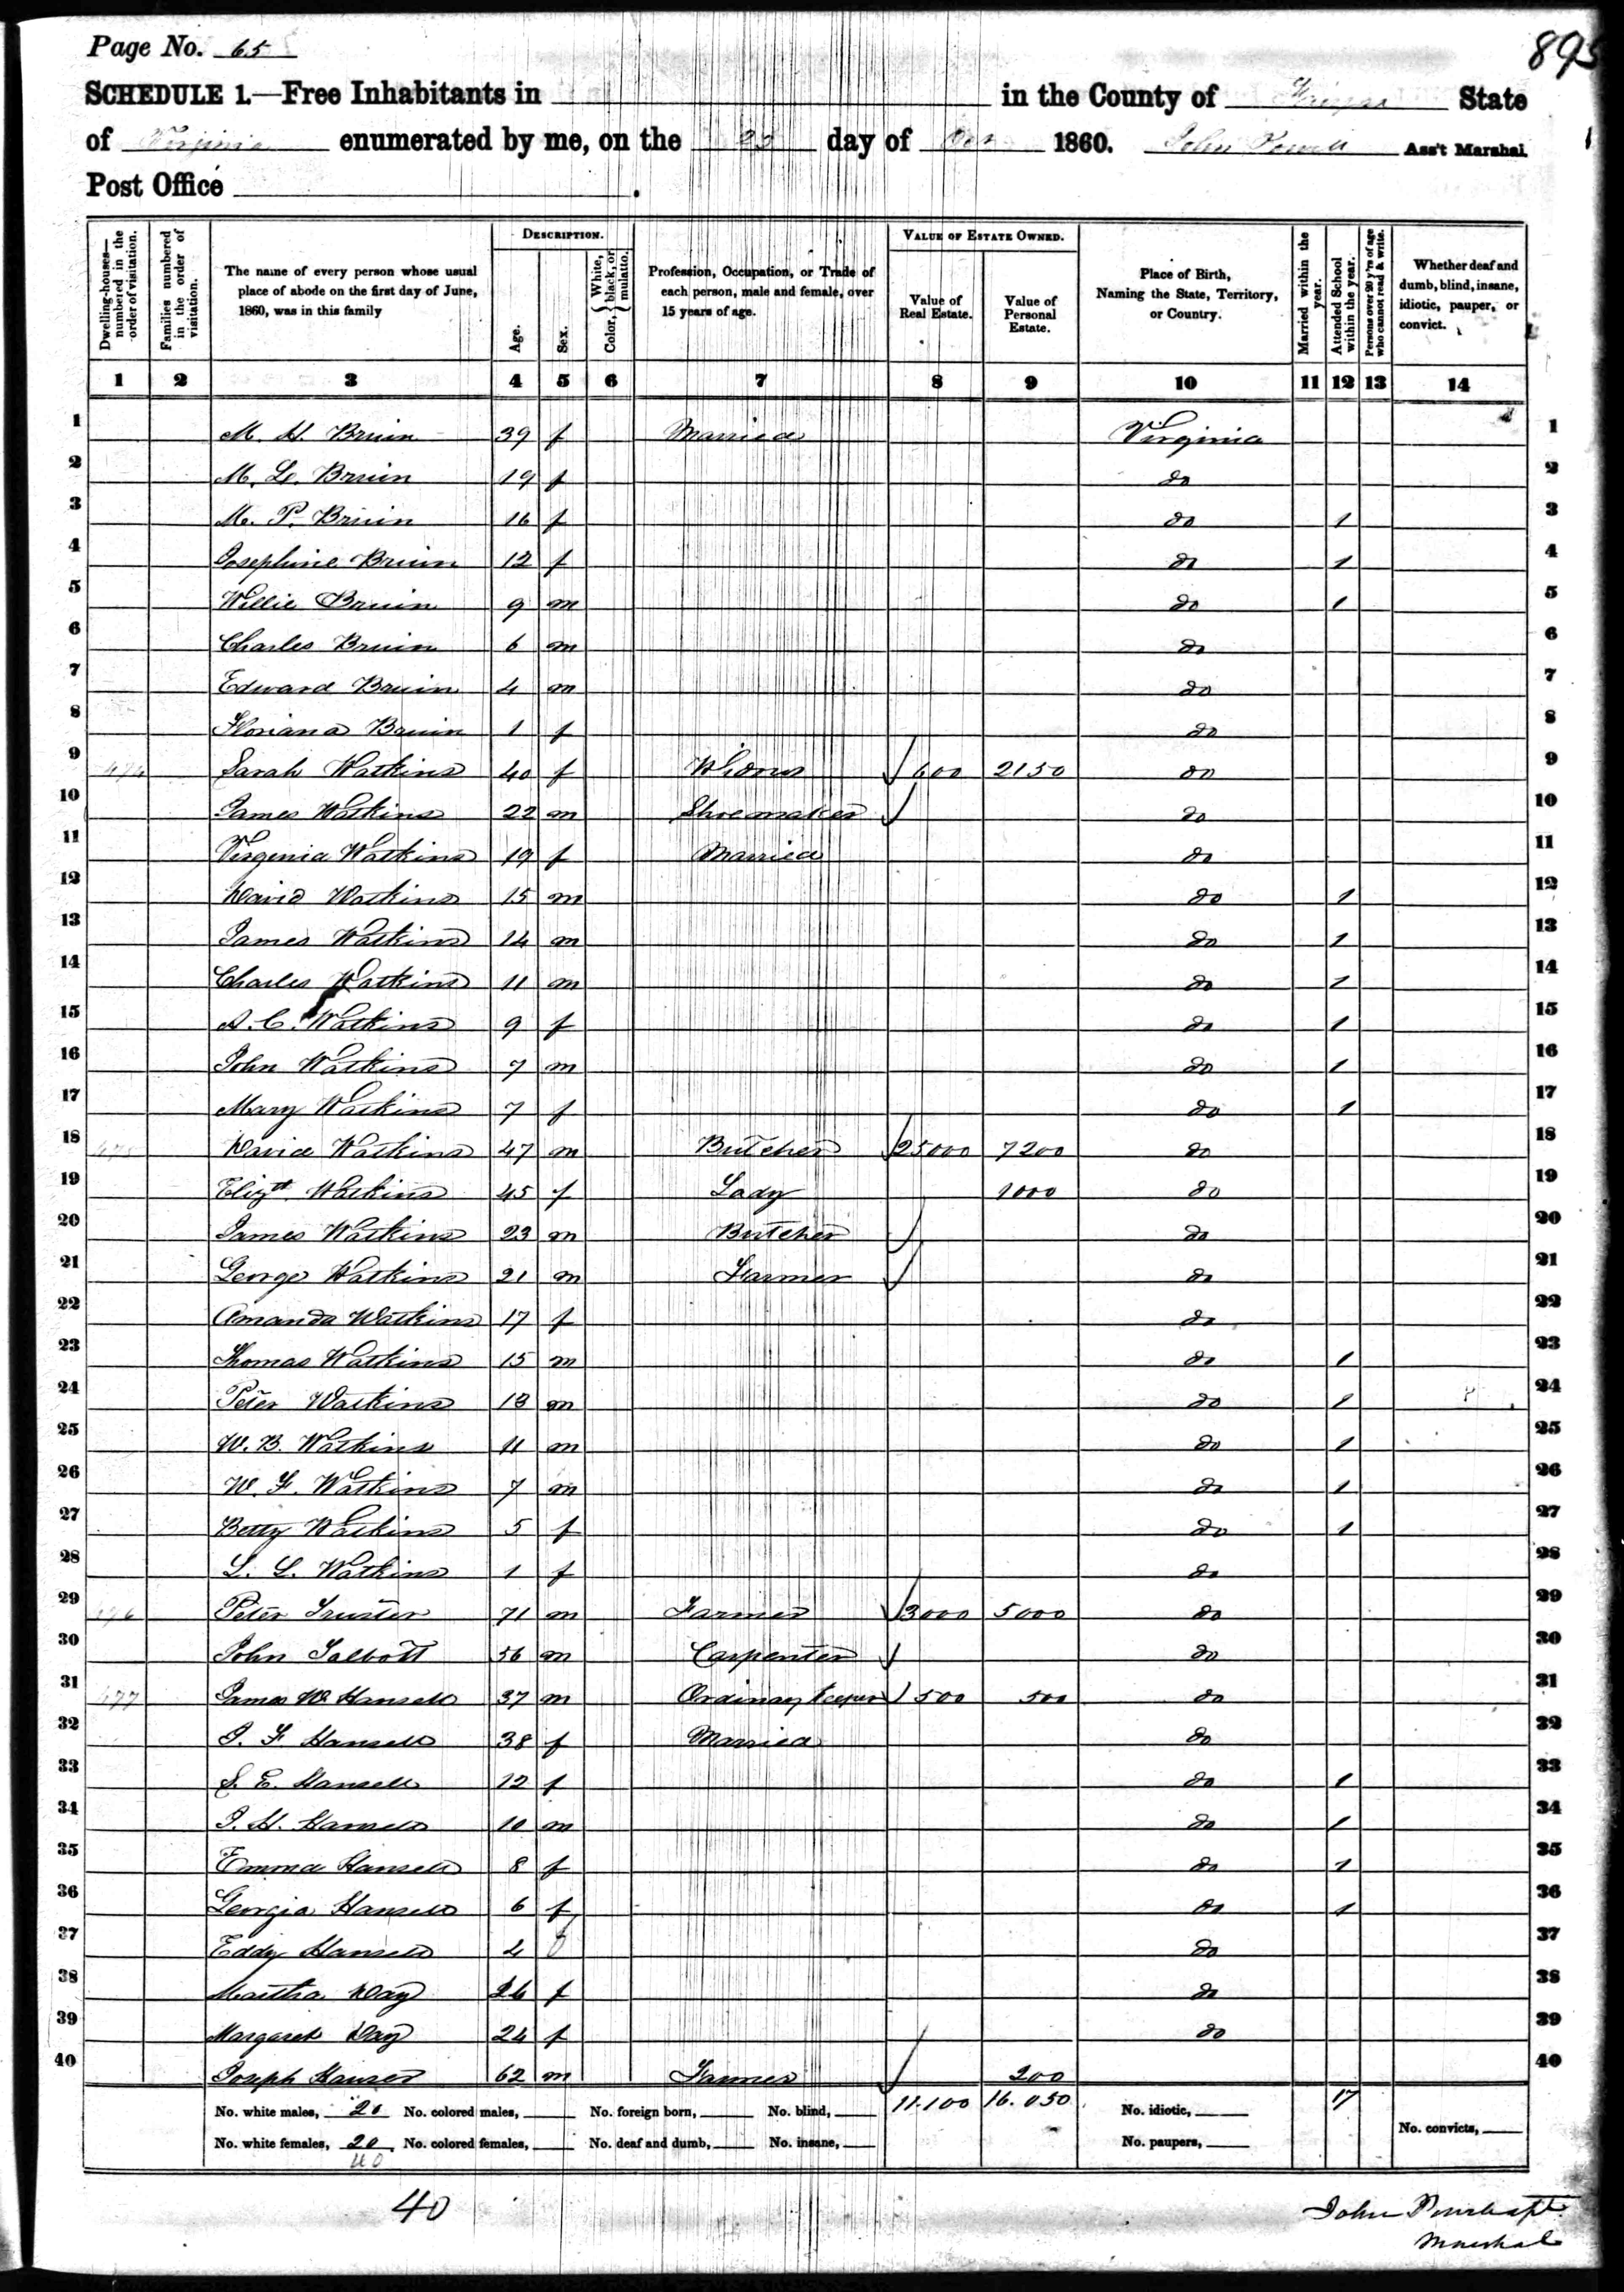 Page No. 65
895
SCHEDULE 1.—Free Inhabitants in in the County of Fairfax State
of Virginia enumerated by me, on the 23 day of 1860. John Powell Ass't Marshal.
Post Office .
Dwelling-houses—numbered in the order of visitation.
Families numbered in the order of visitation.
The name of every person whose usual place of abode on the first day of June, 1860, was in this family
DESCRIPTION.
Age.
Sex.
Color, { White, black, or mulatto.
Profession, Occupation, or Trade of each person, male and female, over 15 years of age.
VALUE OF ESTATE OWNED.
Value of Real Estate.
Value of Personal Estate.
Place of Birth, Naming the State, Territory, or Country.
Married within the year.
Attended School within the year.
Persons over 20 y'rs of age who cannot read & write.
Whether deaf and dumb, blind, insane, idiotic, pauper, or convict.
1 2 3 4 5 6 7 8 9 10 11 12 13 14
1 M. H. Bruin 39 f Married Virginia 1
2 M. L. Bruin 19 f do 2
3 M. P. Bruin 16 f do 1 3
4 Josephine Bruin 12 f do 1 4
5 Willie Bruin 9 m do 1 5
6 Charles Bruin 6 m do 6
7 Edward Bruin 4 m do 7
8 Floriana Bruin 1 f do 8
9 474 Sarah Watkins 40 f Widow 600 2150 do 9
10 James Watkins 22 m Shoemaker do 10
11 Virgenia Watkins 19 f Married do 11
12 David Watkins 15 m do 1 12
13 James Watkins 14 m do 1 13
14 Charles Watkins 11 m do 1 14
15 A. C. Watkins 9 f do 1 15
16 John Watkins 7 m do 1 16
17 Mary Watkins 7 f do 1 17
18 475 David Watkins 47 m Butcher 25000 7200 do 18
19 Elizth Watkins 45 f Lady 1000 do 19
20 James Watkins 23 m Butcher do 20
21 George Watkins 21 m Farmer do 21
22 Amanda Watkins 17 f do 22
23 Thomas Watkins 15 m do 1 23
24 Peter Watkins 13 m do 1 24
25 W. B. Watkins 11 m do 1 25
26 W. F. Watkins 7 m do 1 26
27 Betty Watkins 5 f do 1 27
28 L. L. Watkins 1 f do 28
29 476 Peter Truster 71 m Farmer 3000 5000 do 29
30 John Talbott 56 m Carpenter do 30
31 477 James W. Hansell 37 m Ordinary Keeper 500 500 do 31
32 J. F. Hansell 38 f Married do 32
33 S. E. Hansell 12 f do 1 33
34 J. H. Hansell 10 m do 1 34
35 Emma Hansell 8 f do 1 35
36 Georgia Hansell 6 f do 1 36
37 Eddy Hansell 4 do 37
38 Martha Day 26 f do 38
39 Margaret Day 24 f do 39
40 Joseph 62 m Farmer 200 40
No. white males, 20 No. colored males, No. foreign born, No. blind, 11.100 16.050 No. idiotic, 17
No. white females, 20 No. colored females, No. deaf and dumb, No. insane, No. paupers, No. convicts,
40
40
John Powell
Marshal